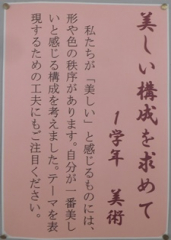 美しい構成を求めて
1学年 美術
私たちが「美しい」と感じるものには、
形や色の秩序があります。自分が一番美し
いと感じる構成を考えました。テーマを表
現するための工夫にもご注目ください。